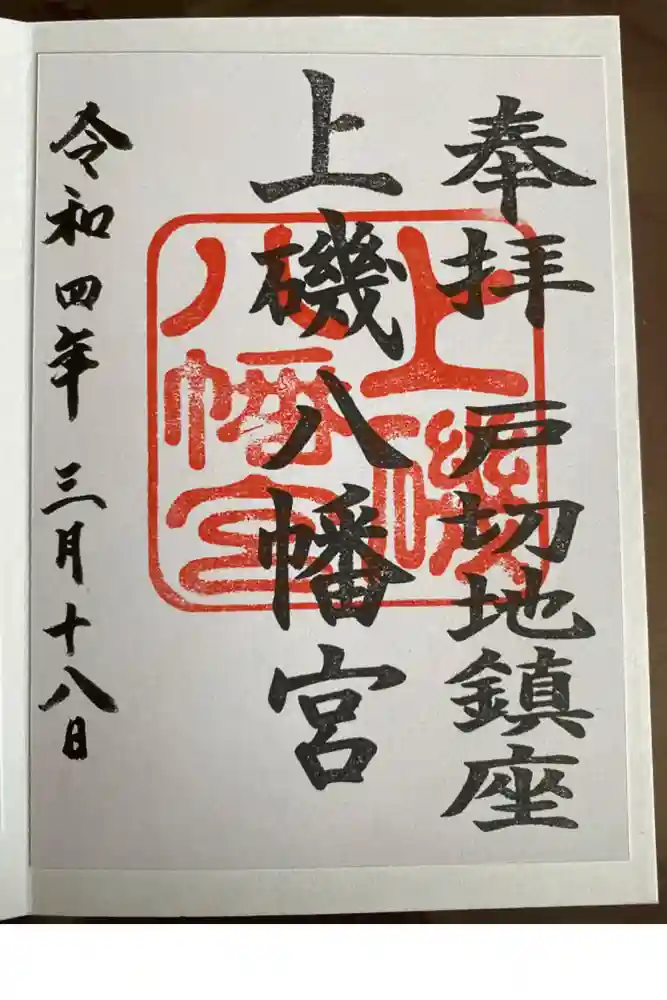 奉拝 戸切地鎮座
上磯八幡宮
上磯
八幡宮
令和四年 三月十八日